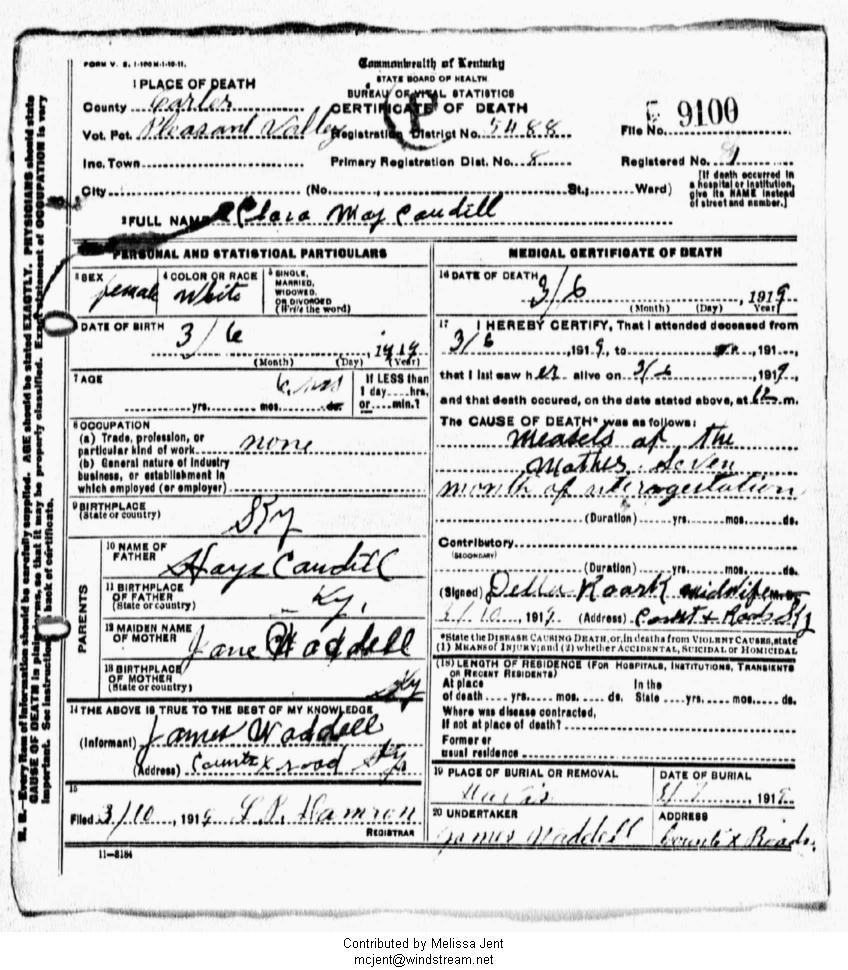 FORM V. S. 1-100M-1-10-11.
Commonwealth of Kentucky
STATE BOARD OF HEALTH
BUREAU OF VITAL STATISTICS
CERTIFICATE OF DEATH
1 PLACE OF DEATH
County Carter
Vot. Pct. Pleasant Valley Registration District No. 5488 File No. 9100
Inc. Town Primary Registration Dist. No. 8 Registered No. 9
City (No. , St.; Ward)
[If death occurred in a hospital or institution, give its NAME instead of street and number.]
2 FULL NAME Clara May Caudill
PERSONAL AND STATISTICAL PARTICULARS
3 SEX female
4 COLOR OR RACE White
5 SINGLE, MARRIED, WIDOWED, OR DIVORCED (Write the word)
DATE OF BIRTH 3/6 1919
(Month) (Day) (Year)
7 AGE 6 hrs
yrs. mos. ds.
If LESS than 1 day hrs. or min.?
8 OCCUPATION
(a) Trade, profession, or
particular kind of work none
(b) General nature of industry
business, or establishment in
which employed (or employer)
9 BIRTHPLACE
(State or country) Ky
PARENTS
10 NAME OF FATHER Hays Caudill
11 BIRTHPLACE OF FATHER (State or country) Ky.
12 MAIDEN NAME OF MOTHER Jane Waddell
13 BIRTHPLACE OF MOTHER (State or country) Ky
14 THE ABOVE IS TRUE TO THE BEST OF MY KNOWLEDGE
(Informant) James Waddell
(Address) Counts X road Ky
15
Filed 3/10, 1919 Damron
REGISTRAR
11-3184
MEDICAL CERTIFICATE OF DEATH
16 DATE OF DEATH 3/6, 1919
(Month) (Day) Year
17 I HEREBY CERTIFY, That I attended deceased from
3/6, 1919, to , 191 ,
that I last saw her alive on 3/6, 1919,
and that death occured, on the date stated above, at 12 m.
The CAUSE OF DEATH* was as follows:
Measels of the
Mother. Seven
month of
(Duration) yrs. mos. ds.
Contributory
(SECONDARY)
(Duration) yrs. mos. ds.
(Signed) Della Roark midwife
3/10, 1919. (Address) Count X Roads Ky
*State the DISEASE CAUSING DEATH, or, in deaths from VIOLENT CAUSES, state
(1) MEANS OF INJURY; and (2) whether ACCIDENTAL, SUICIDAL or HOMICIDAL
(18) LENGTH OF RESIDENCE (FOR HOSPITALS, INSTITUTIONS, TRANSIENTS
OR RECENT RESIDENTS)
At place of death yrs. mos. ds. In the State yrs. mos. ds.
Where was disease contracted,
If not at place of death?
Former or
usual residence
19 PLACE OF BURIAL OR REMOVAL
DATE OF BURIAL 3/7, 1919
20 UNDERTAKER James Waddell
ADDRESS Counts X Roads
N. B.—Every item of information should be carefully supplied. AGE should be stated EXACTLY. PHYSICIANS should state
CAUSE OF DEATH in plain terms, so that it may be properly classified. Exact statement of OCCUPATION is very
important. See instructions on back of certificate.
Contributed by Melissa Jent
mcjent@windstream.net